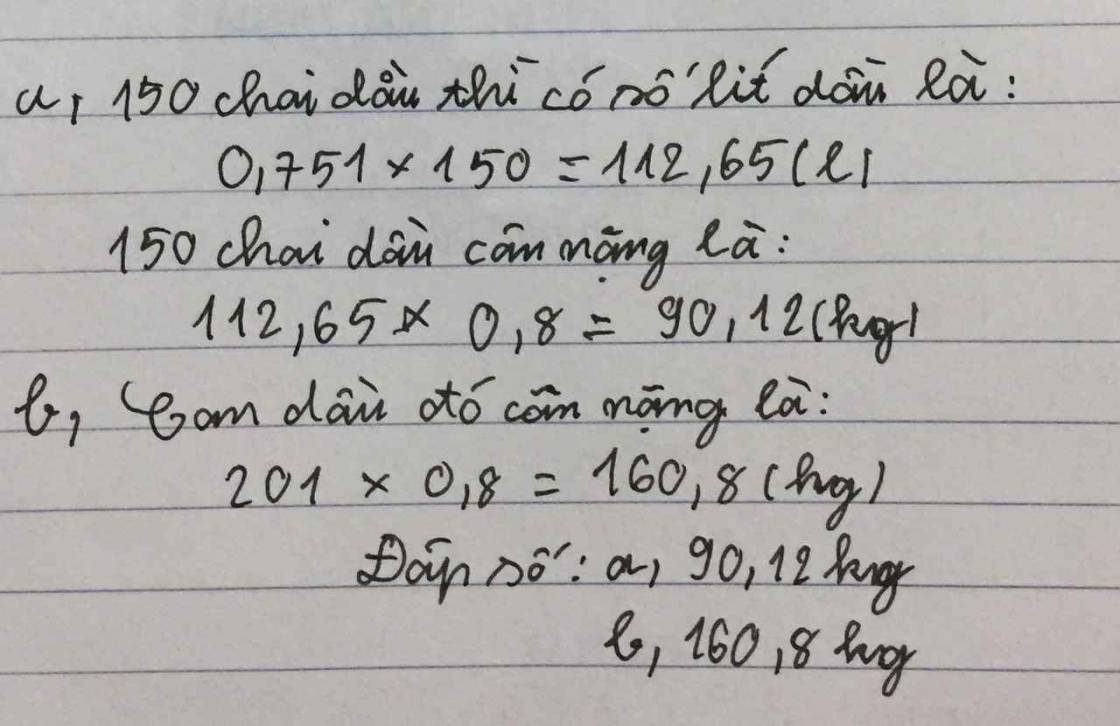 a, 150 chai dầu thì có số lít dầu là:
0,751 × 150 = 112,65(l)
150 chai dầu cân nặng là:
112,65 × 0,8 = 90,12(kg)
b, Can dầu đó cân nặng là:
201 × 0,8 = 160,8 (kg)
Đáp số: a, 90,12 kg
b, 160,8 kg